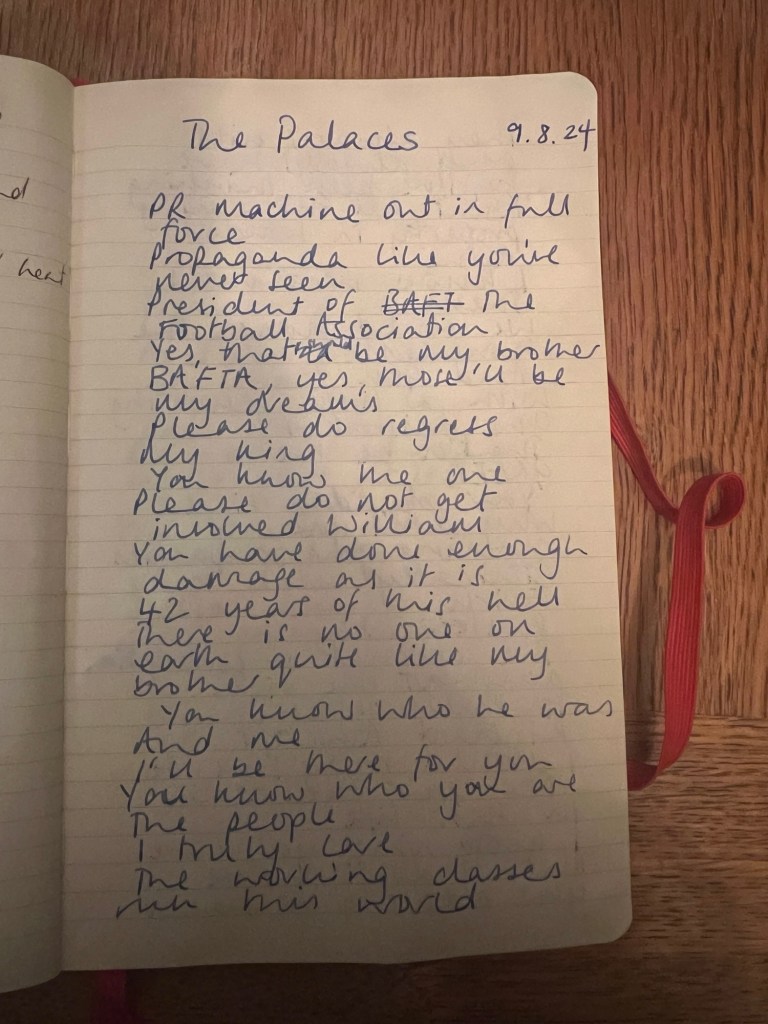 The Palaces 9.8.24
PR machine out in full
force
Propaganda like you've
never seen
President of BAFT The
Football Association
Yes, that be my brother
BAFTA, yes, those'll be
my dreams
Please do regress
My King
You know me one
Please do not get
involved William
You have done enough
damage as it is
42 years of this hell
There is no one on
earth quite like my
brother
You know who he was
And me
I'll be there for you
You know who you are
The people
I truly love
The working classes
run this world
nd
heat